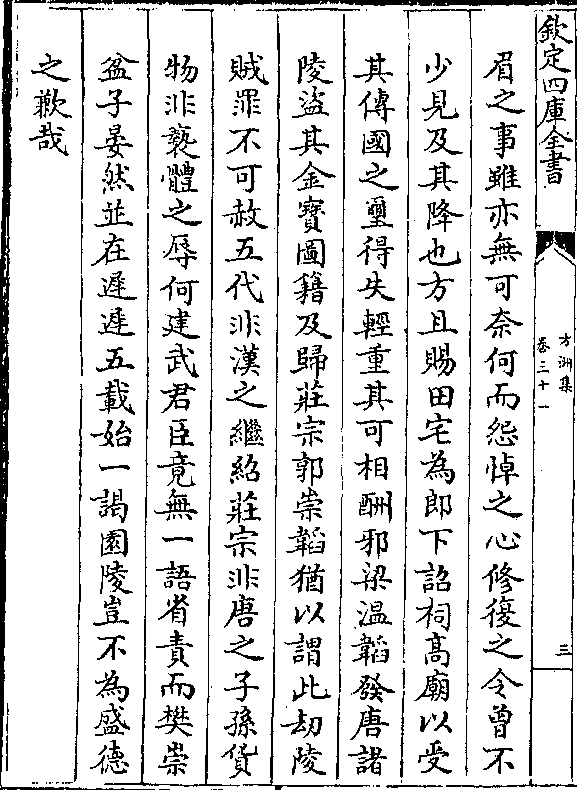 欽定四庫全書
方洲集
卷三十一
三
眉之事雖亦無可奈何而怨悼之心修復之令曾不
少見及其降也方且賜田宅為郎下詔祠高廟以受
其傳國之璽得失輕重其可相酬邪梁溫韜發唐諸
陵盜其金寶圖籍及歸莊宗郭崇韜猶以謂此劫陵
賊罪不可赦五代非漢之繼紹莊宗非唐之子孫貨
物非褻體之辱何建武君臣竟無一語省責而樊崇
盆子晏然並在遲遲五載始一謁園陵豈不為盛德
之歉哉